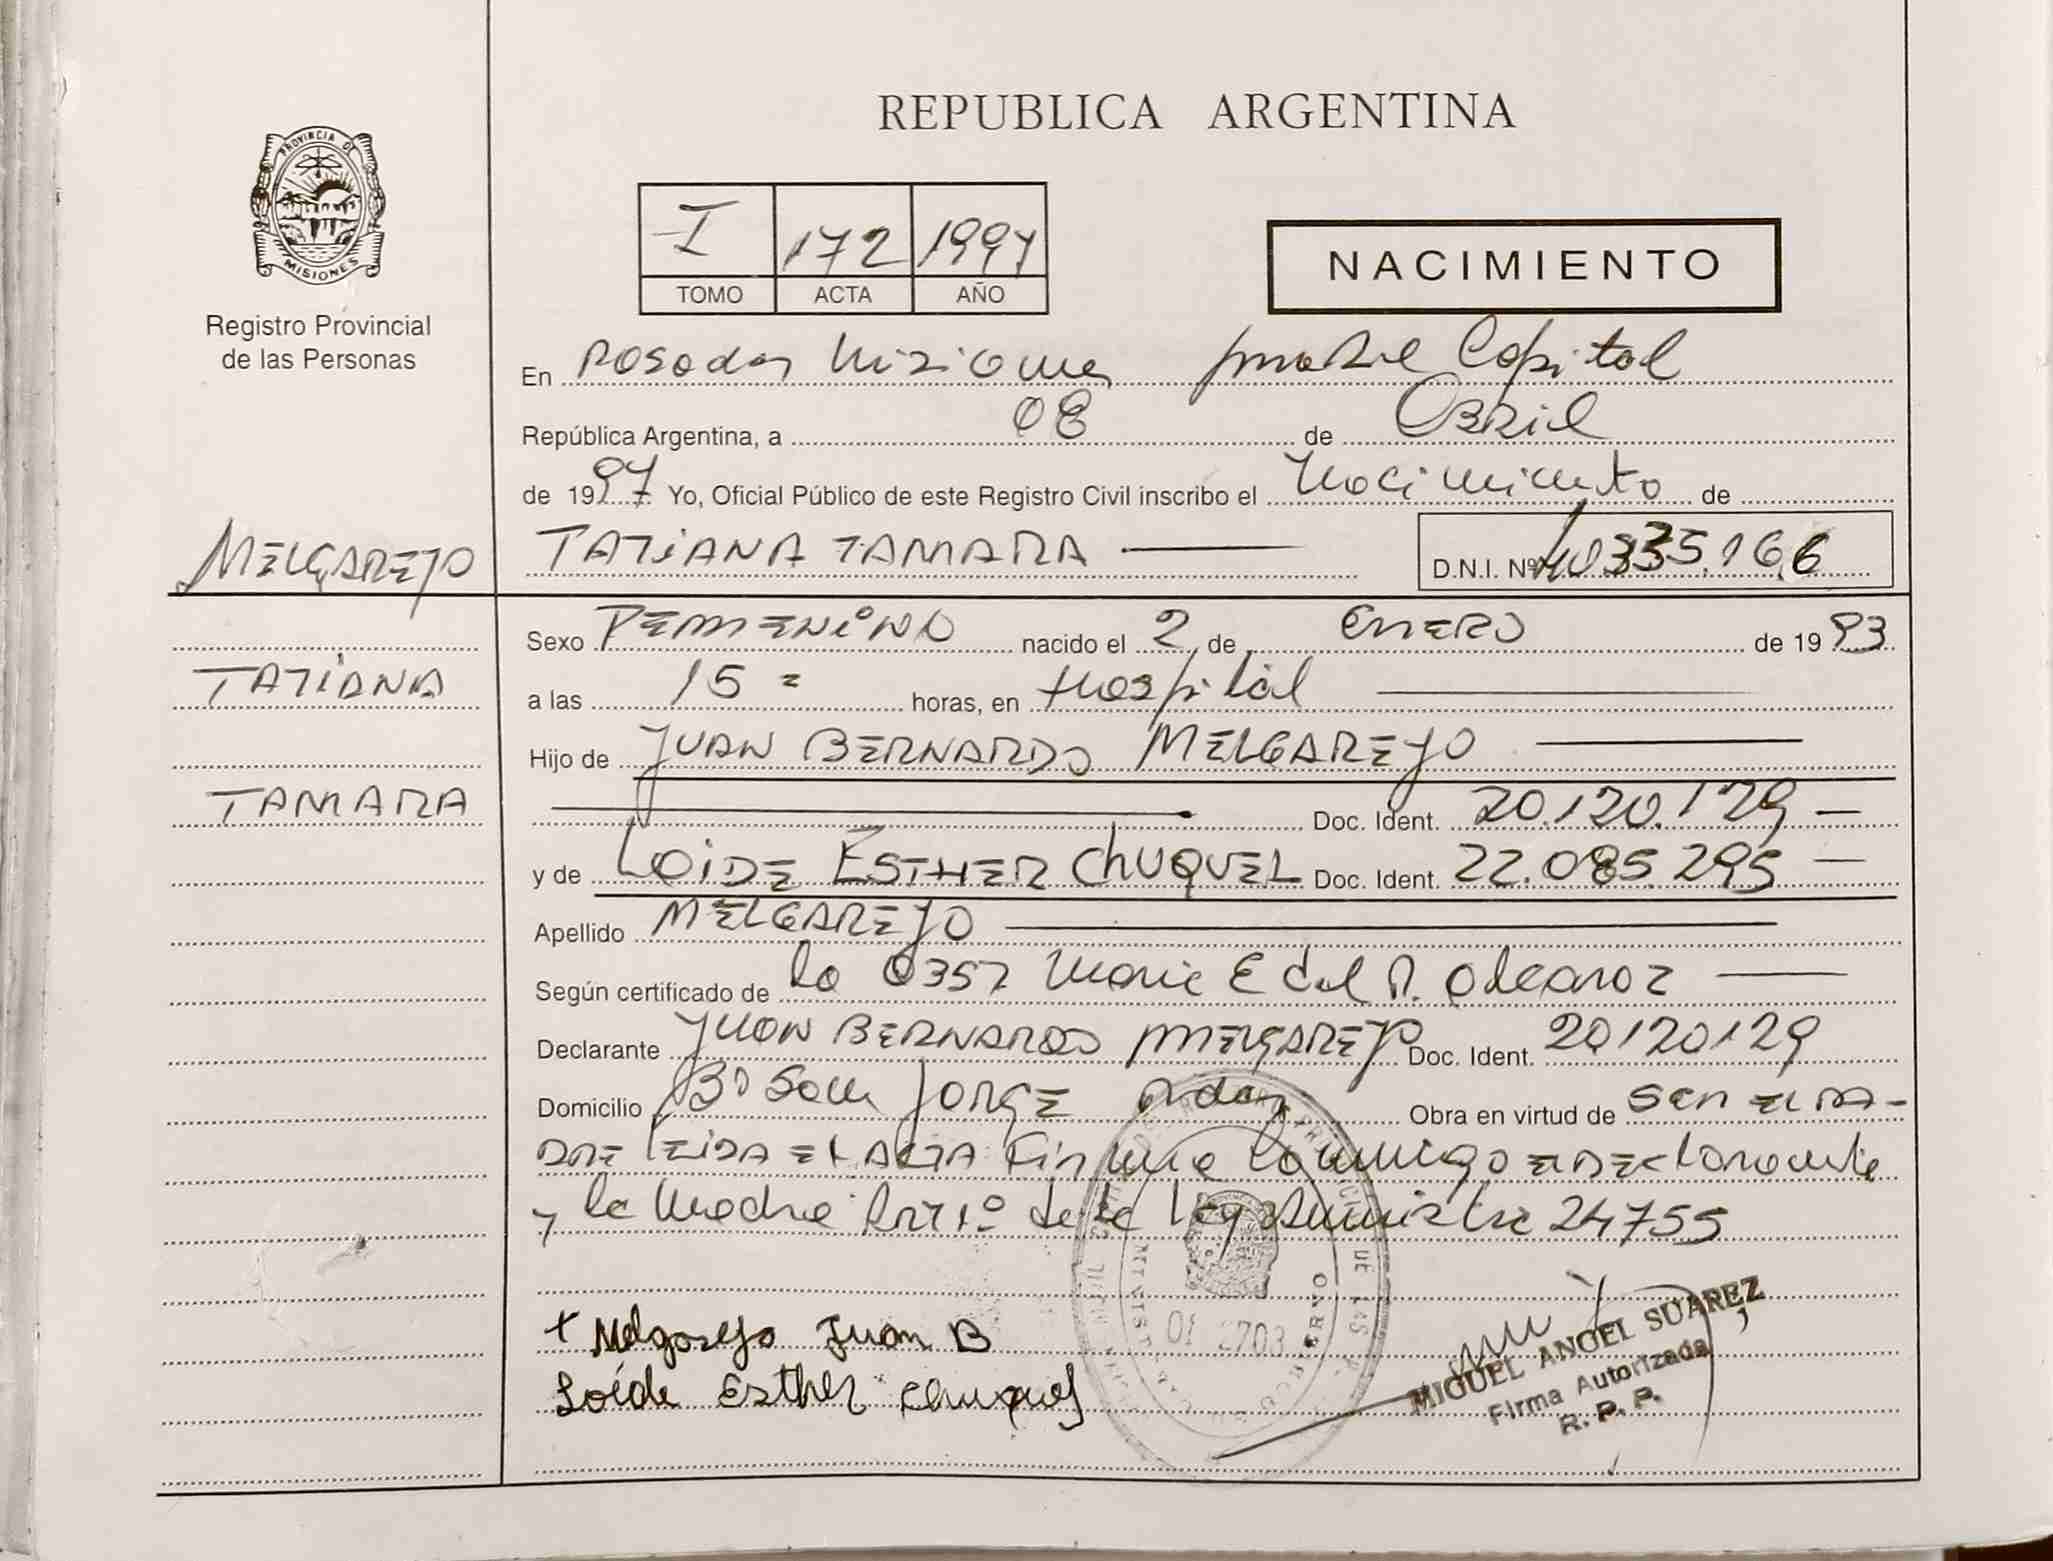 PROVINCIA DE
MISIONES
Registro Provincial
de las Personas
REPUBLICA ARGENTINA
I 172 1997
TOMO ACTA AÑO
NACIMIENTO
En Posadas Misiones Capital
República Argentina, a 08 de Abril
de 1997 Yo, Oficial Público de este Registro Civil inscribo el Nacimiento de
MELGAREJO TATIANA TAMARA D.N.I. Nº 40.335.166
Sexo FEMENINO nacido el 2 de ENERO de 1993
TATIANA
a las 15 = horas, en Hospital
Hijo de JUAN BERNARDO MELGAREJO
TAMARA
Doc. Ident. 20.120.129
y de LOIDE ESTHER CHUQUEL Doc. Ident. 22.085.295
Apellido MELGAREJO
Según certificado de la 0357
Declarante JUAN BERNARDO MELGAREJO Doc. Ident. 20120129
Domicilio Bº San JORGE Pdas Obra en virtud de SER EL PA-
DRE LEIDA EL ACTA Firma Conmigo el declarante
y la Madre de la Ley 24755
+ Melgarejo Juan B
Loide Esther Chuquel
MIGUEL ANGEL SUAREZ
Firma Autorizada
R. P. P.